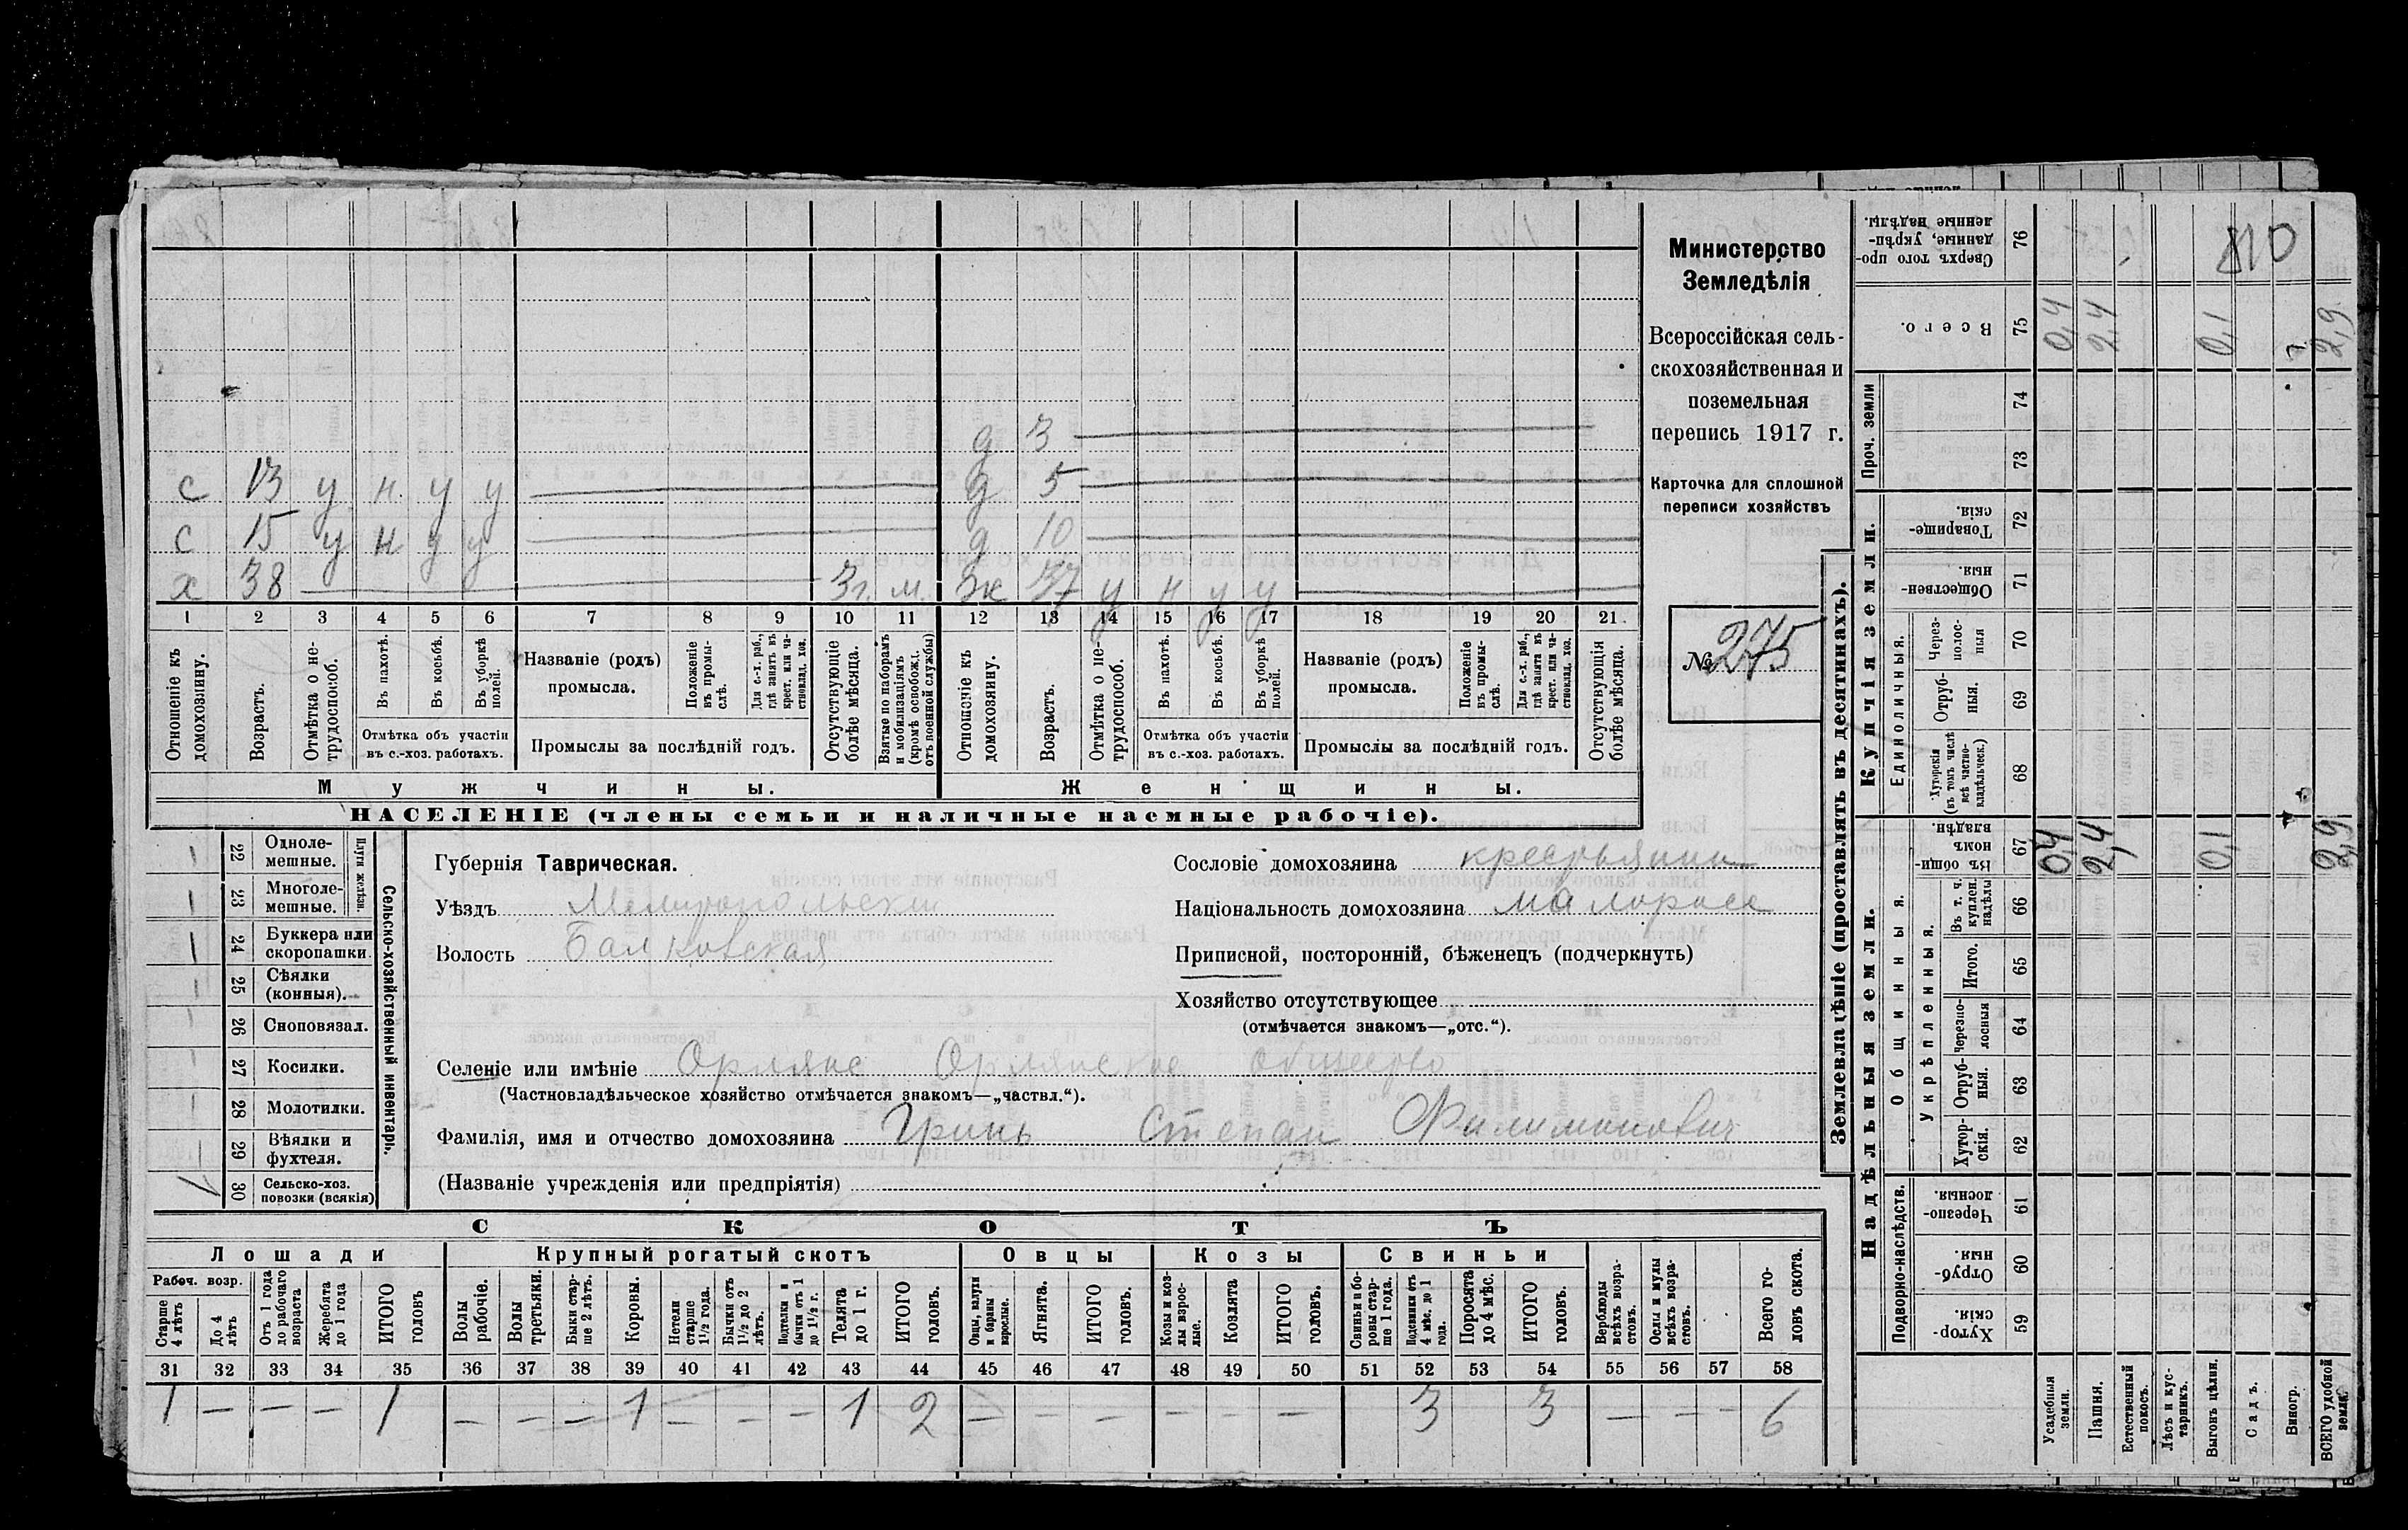 810
д 3
с 13 у н. у у д 5
с 15 у н у у д 10
х 38 3г. м. Эк 37 у н у у
1 2 3 4 5 6 7 8 9 10 11 12 13 14 15 16 17 18 19 20 21
Отношеніе къ домохозяину.
Возрастъ.
Отмѣтка о нетрудоспособ.
Въ пахотѣ.
Въ косьбѣ.
Въ уборкѣ полей.
Отмѣтка объ участіи
въ с.-хоз. работахъ.
Названіе (родъ)
промысла.
Положеніе въ промыслѣ.
Для с.-х. раб., гдѣ занятъ въ крест. или частновлад. хоз.
Промыслы за послѣдній годъ.
Отсутствующіе болѣе мѣсяца.
Взятые по наборамъ и мобилизаціямъ (кромѣ освобожд. отъ военной службы)
Отношеніе къ домохозяину.
Возрастъ.
Отмѣтка о нетрудоспособ.
Въ пахотѣ.
Въ косьбѣ.
Въ уборкѣ полей.
Отмѣтка объ участіи
въ с.-хоз. работахъ.
Названіе (родъ)
промысла.
Положеніе въ промыслѣ.
Для с.-х. раб., гдѣ занята въ крест. или частновлад. хоз.
Промыслы за послѣдній годъ.
Отсутствующія болѣе мѣсяца.
Мужчины.
Женщины.
НАСЕЛЕНІЕ (члены семьи и наличные наемные рабочіе).
Министерство
Земледѣлія
Всероссійская сель-
скохозяйственная и
поземельная
перепись 1917 г.
Карточка для сплошной
переписи хозяйствъ
№ 275
22 Однолемешные.
23 Многолемешные.
Плуги желѣзн.
24 Буккера или скоропашки.
25 Сѣялки (конныя).
26 Сноповязал.
27 Косилки.
28 Молотилки.
29 Вѣялки и фухтеля.
30 Сельско-хоз. повозки (всякія)
Сельско-хозяйственный инвентарь.
Губернія Таврическая.
Уѣздъ Мелитопольскій
Волость Балковская
Сословіе домохозяина крестьянин
Національность домохозяина малоросс
Приписной, посторонній, бѣженецъ (подчеркнуть)
Хозяйство отсутствующее
(отмѣчается знакомъ—„отс.“).
Селеніе или имѣніе Орлянс Орлянское общество
(Частновладѣльческое хозяйство отмѣчается знакомъ—„частвл.“).
Фамилія, имя и отчество домохозяина Гринь Степан Филимонович
(Названіе учрежденія или предпріятія)
СКОТЪ
Лошади Крупный рогатый скотъ Овцы Козы Свиньи
Рабоч. возр.
Старше 4 лѣтъ
До 4 лѣтъ
Отъ 1 года до рабочаго возраста
Жеребята до 1 года
ИТОГО головъ
Волы рабочіе.
Волы третьяки.
Быки старше 2 лѣтъ.
Коровы.
Нетели старше 1½ года.
Бычки отъ 1½ до 2 лѣтъ.
Подтелки и бычки отъ 1 до 1½ г.
Телята до 1 г.
ИТОГО головъ.
Овцы, валухи и бараны взрослые.
Ягнята.
ИТОГО головъ.
Козы и козлы взрослые.
Козлята
ИТОГО головъ.
Свиньи и боровы старше 1 года.
Подсвинки отъ 4 мѣс. до 1 года.
Поросята до 4 мѣс.
ИТОГО головъ.
Верблюды всѣхъ возрастовъ.
Ослы и мулы всѣхъ возрастовъ.
Всего головъ скота.
31 32 33 34 35 36 37 38 39 40 41 42 43 44 45 46 47 48 49 50 51 52 53 54 55 56 57 58
1 — — — 1 — — — 1 — — — 1 2 — — — — — — 3 3 — — — 6
Землевладѣніе (проставлять въ десятинахъ).
76 Сверхъ того проданные, укрѣпленные надѣлы.
75 Всего. 0,4 2,4 0,1 2,9
Проч. земли
74
73
Купчія земли.
72 Товарищескія.
71 Общественныя.
Единоличныя.
70 Черезполосныя
69 Отрубныя.
68 Хуторскія (въ томъ числѣ всѣ частновладѣльческ.)
Надѣльныя земли.
Общинныя.
67 Въ общинномъ владѣн. 0,4 2,4 0,1 2,9
Укрѣпленныя.
66 Въ т. ч. куплен. надѣлы
65 Итого.
64 Черезполосныя
63 Отрубныя.
62 Хуторскія.
Подворно-наслѣдств.
61 Черезполосныя.
60 Отрубныя.
59 Хуторскія
Усадебныя земли.
Пашня.
Естественный покосъ.
Лѣсъ и кустарникъ.
Выгонъ цѣлин.
Садъ.
Виногр.
ВСЕГО удобной земли.